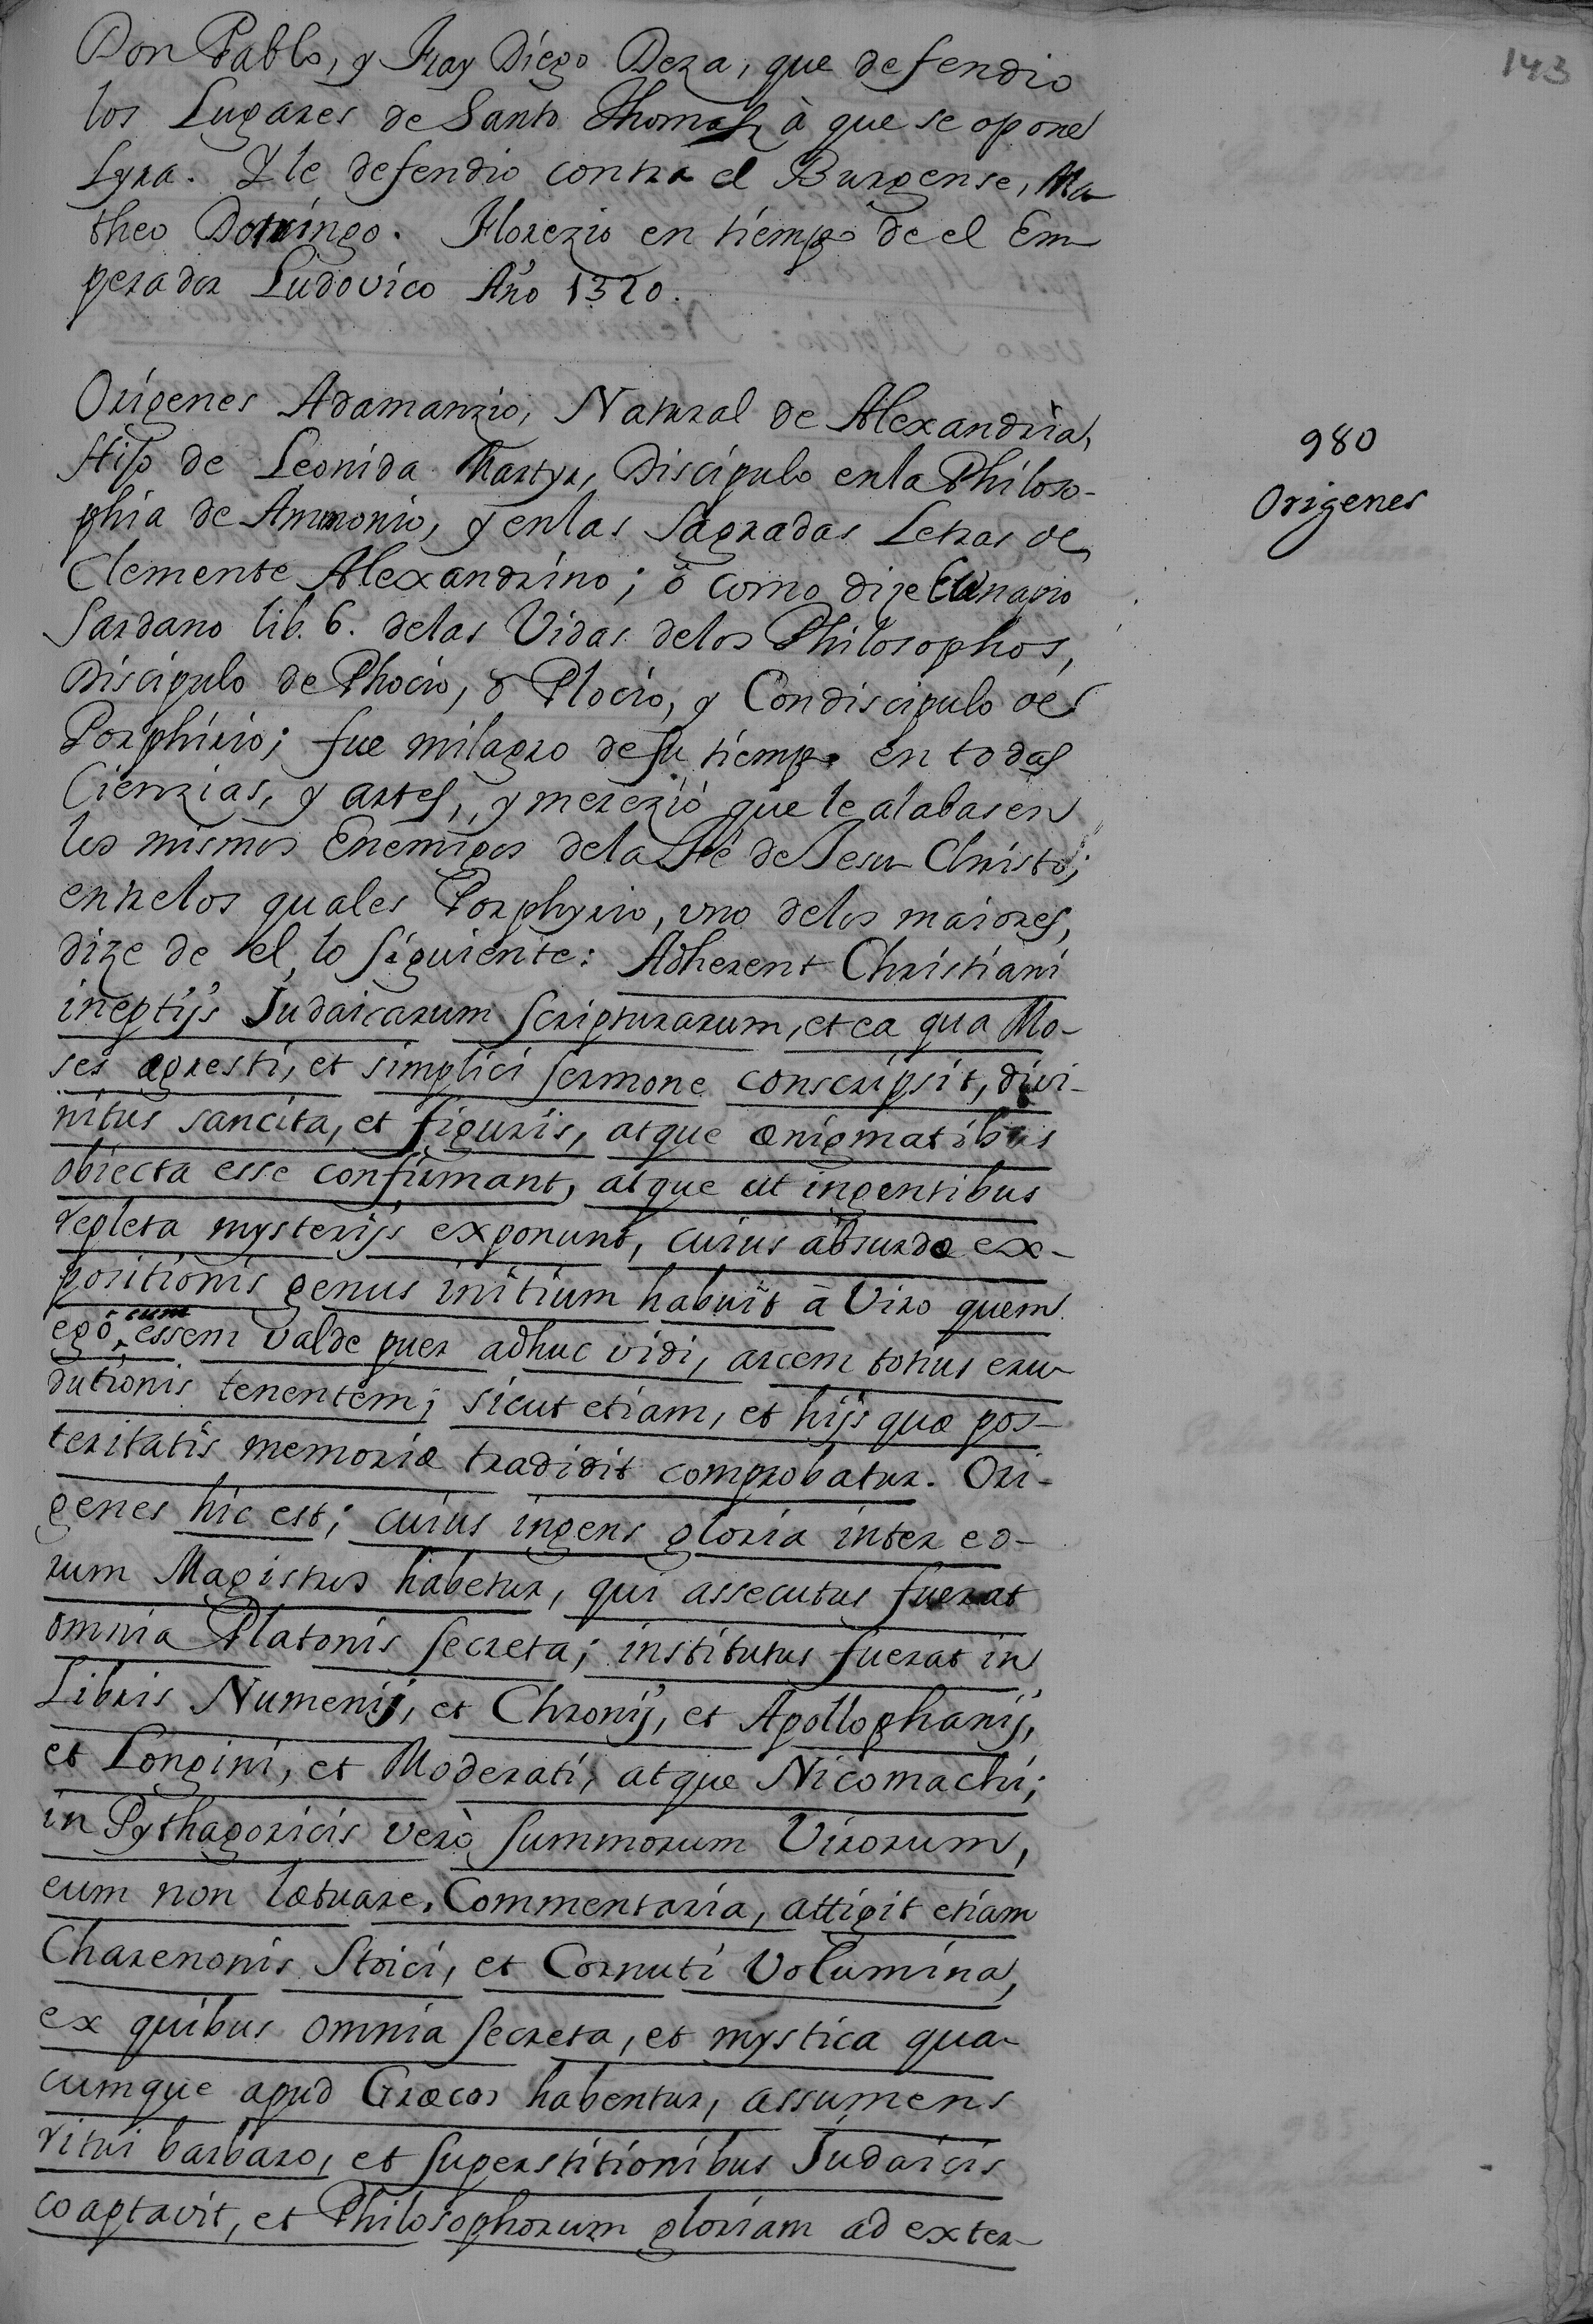 143
Don Pablo, y Fray Diego Deza, que defendio
los Lugares de Santo Thomas à que se opone
Lyra. Y le defendio contra el Burgense, Ma-
theo Doringo. Florezio en tiempo de el Em-
perador Ludovico Año 1320.
980
Origenes
Origenes Adamanzio, Natural de Alexandria,
Hijo de Leonida Martyr, Discipulo en la Philoso-
phia de Ammonio, y en las Sagradas Letras de
Clemente Alexandrino; ò como dize Eunapio
Sardano lib. 6. delas Vidas delos Philosophos,
Discipulo de Phocio, ò Plocio, y Condiscipulo de
Porphirio; fue milagro de su tiempo en todas
Cienzias, y artes, y merezio que le alabasen
los mismos Enemigos dela Fè de Jesu Christo;
entrelos quales Porphyrio, uno delos maiores,
dize de el, lo siguiente: Adherent Christiani
ineptijs Judaicarum scripturarum, et ea qua Mo-
ses agresti, et simplici sermone conscripsit, divi-
nitus sancita, et figuris, atque ænigmatibus
obiecta esse confirmant, atque ut ingentibus
repleta mysterijs exponunt, cuius absurdæ ex-
positionis genus initium habuit à Viro quem
ego, cum essem valde puer adhuc vidi, arcem totius eru-
ditionis tenentem; sicut etiam, et hijs quæ pos-
teritatis memoriæ tradidit comprobatur. Ori-
genes hic est; cuius ingens gloria inter eo-
rum Magistros habetur, qui assecutus fuerat
omnia Platonis secreta; institutus fuerat in
Libris Numenij, et Chronij, et Apollophanij,
et Longini, et Moderati, atque Nicomachi;
in Pythagoricis verò summorum Virorum,
eum non latuare. Commentaria, attigit etiam
Charenonis Stoici, et Cornuti Volumina,
ex quibus omnia secreta, et mystica qua-
cumque apud Græcos habentur, assumens
ritui barbaro, et superstitionibus Judaicis
coaptavit, et Philosophorum gloriam ad exter-